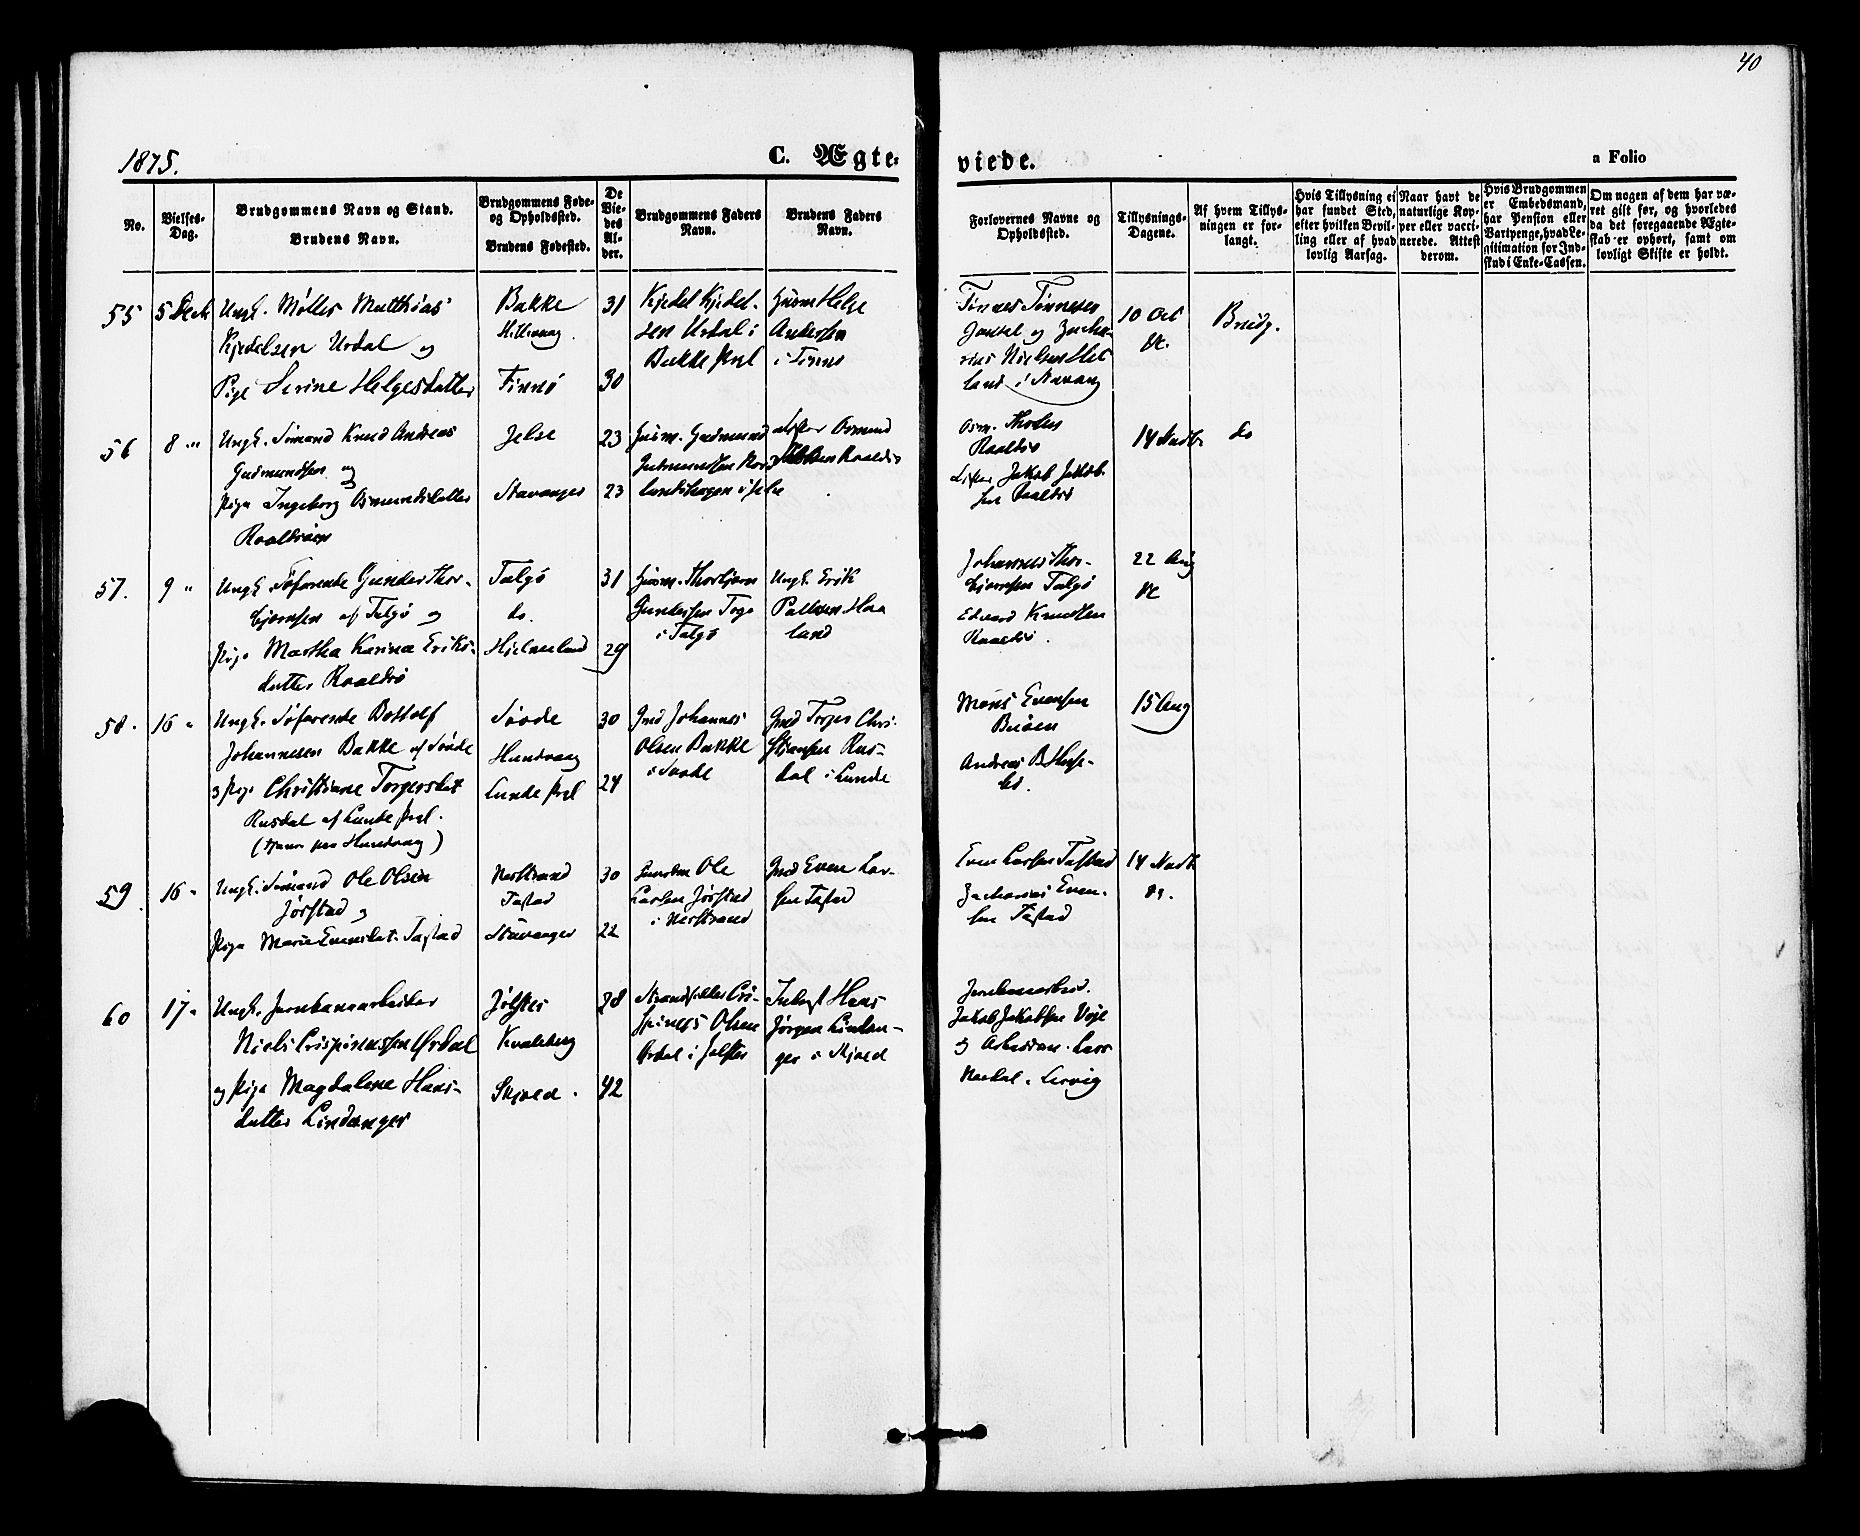 40
1875.
C. Ægte-
viede.
a Folio
No.
Vielses-
Dag.
Brudgommens Navn og Stand.
Brudens Navn.
Brudgommens Føde-
og Opholdssted.
Brudens Fødested.
De
Vie-
des
Al-
der.
Brudgommens Faders
Navn.
Brudens Faders
Navn.
Forlovernes Navne og
Opholdssted.
Tillysnings-
Dagene.
Af hvem Tillys-
ningen er for-
langt.
Hvis Tillysning ei
har fundet Sted,
efter hvilken Bevil-
ling eller af hvad
lovlig Aarsag.
Naar havt de
naturlige Kop-
per eller vacci-
nerede. Attest
derom.
Hvis Brudgommen
er Embedsmand,
har Pension eller
Vartpenge, hvad Le-
gitimation for Ind-
skud i Enke-Cassen.
Om nogen af dem har væ-
ret gift før, og hvorledes
da det foregaaende Ægte-
skab er ophørt, samt om
lovligt Skifte er holdt.
55
5 Dech
Ungk. Møller Matthias
Kjedelsen Urdal og
Pige Serine Helgesdatter
Bakke
Hillevaag
Finnø
31
30
Kjedel Kjedel-
sen Urdal i
Bakke Prgl
Husm Helge
Andersen
i Finnø
Tønnes Tønnesen
og Zacha-
rias Nielsen Het
land i Stavang
10 Oct
Brudg.
56
8 "
Ungk. Sømand Knud Andreas
Gudmundsen og
Pige Ingeborg Osmundsdatter
Raaldsøen
Jelse
Stavanger
23
23
Husm. Gudmund
Gudmundsen
landshagen i Jelse
Osmund
Raaldsø
Osm.
Raaldsø
Jakob Jakob-
sen Raaldsø
14 Novb.
do
57.
9 "
Ungk. Søfarende Gunder Thor-
bjørnsen af Talgø og
Pige Martha Karina Eriks-
datter Raaldsø
Talgø
do.
Hjelmeland
31
29
Husm. Thorbjørn
Gundersen
i Talgø
Ungk. Erik
Paulsen Haa
land
Johannes Thor-
bjørnsen Talgø
Edvard Knudsen
Raaldsø.
22 Aug
58.
16 "
Ungk. Søfarende Bottolf
Johannesen Bakke af Sovde
og Pige Christiane Torgersdat
Rusdal af Lunde Prgl.
(tjener paa Hundvaag)
Sovde
Hundvaag
Lunde Prgl
30
24
Gmd Johannes
Olsen Bakke
i Sovde
Gmd Torger Chri-
stiansen Rus-
dal i Lunde
Mons Evensen
Buøen
Andreas B Huse-
bø.
15 Aug
59
16 "
Ungk. Sømand Ole Olsen
Jørstad og
Pige Marie Evensdat. Tastad
Nerstrand
Tastad
Stavanger
30
22
Ole
Larsen Jørstad
i Nerstrand
Gmd Even Lar-
sen Tastad
Even Larsen Tastad
Zacharias Even-
sen Tastad
14 Novb
60
17 "
Ungk. Jernbanearbeider
Niels Crispinussen Ørdal
og Pige Magdalene Hans-
datter Lindanger
Jølster
Kvaleberg
Skjold.
28
42
Strandsidder Cri-
spinus Olsen
Ørdal i Jølster
Hans
Jørgen Lindan-
ger i Skjold
Jernbanearbeid.
Jakob Jakobsen Voje
og Arbeidsm. Lars